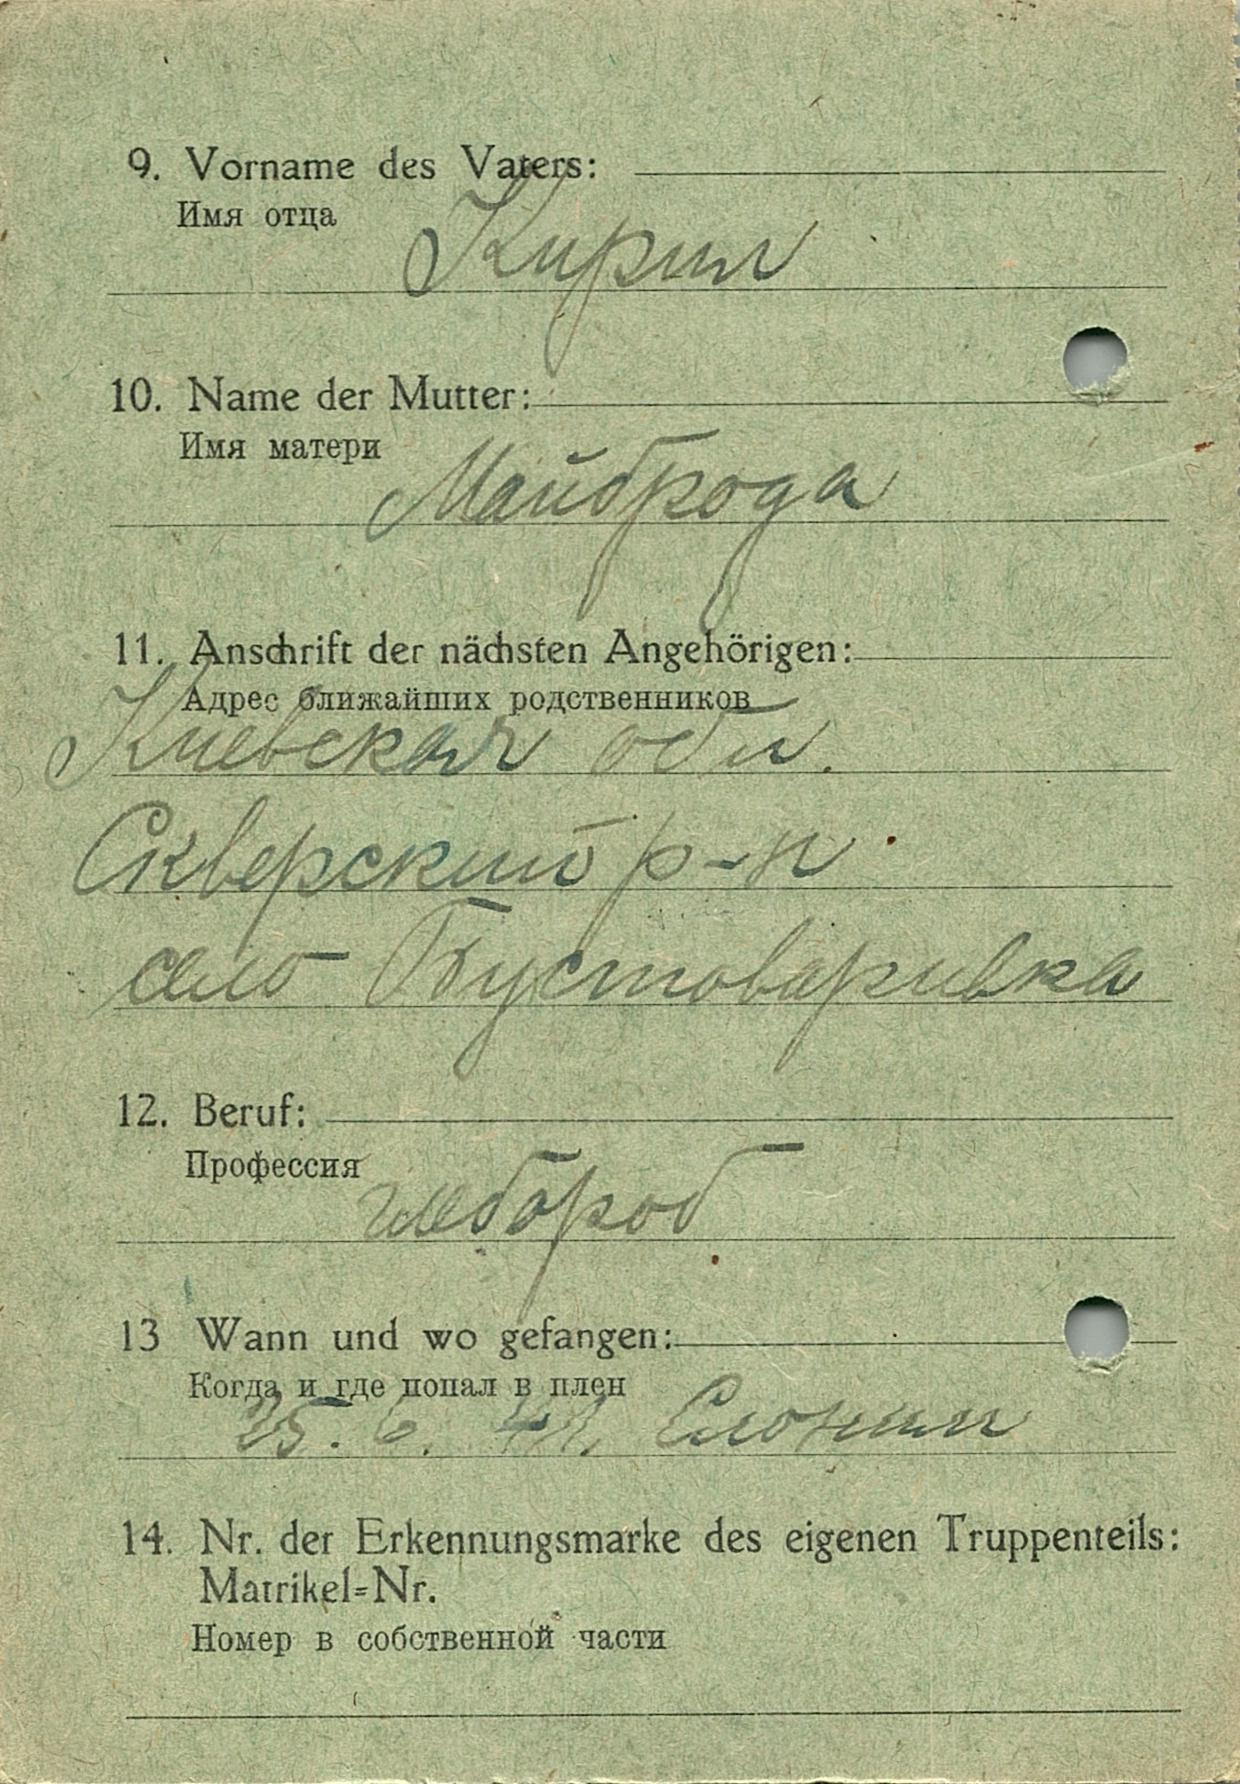 9. Vorname des Vaters:
Имя отца
Кирил
10. Name der Mutter:
Имя матери
Майброда
11. Anschrift der nächsten Angehörigen:
Адрес ближайших родственников
Киевская обл.
Скверский р-н
село Пустоваривка
12. Beruf:
Профессия
хлебороб
13 Wann und wo gefangen:
Когда и где попал в плен
25. 6. 41. Слоним
14. Nr. der Erkennungsmarke des eigenen Truppenteils:
Matrikel=Nr.
Номер в собственной части